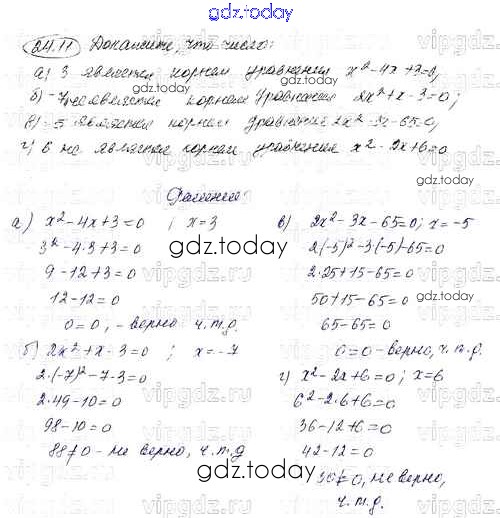 gdz.today
24.11 Докажите, что число:
а) 3 является корнем уравнения x²-4x+3=0,
б) -7 не является корнем уравнения 2x²+x-3=0;
в) -5 является корнем уравнения 2x²-3x-65=0,
г) 6 не является корнем уравнения x²-2x+6=0
gdz.today
Решение:
а) x²-4x+3=0 ; x=3
3²-4·3+3=0
9-12+3=0
12-12=0
0=0, - верно ч.т.д.
б) 2x²+x-3=0 ; x=-7
2·(-7)²-7-3=0
2·49-10=0
98-10=0
88≠0 - не верно, ч.т.д
в) 2x²-3x-65=0; x=-5
2(-5)²-3(-5)-65=0
2·25+15-65=0
50+15-65=0
65-65=0
0=0 - верно, ч.т.д.
г) x²-2x+6=0; x=6
6²-2·6+6=0
36-12+6=0
42-12=0
30≠0, не верно,
ч.т.д.
gdz.today
gdz.today
gdz.today
gdz.today
gdz.today
vipgdz.ru